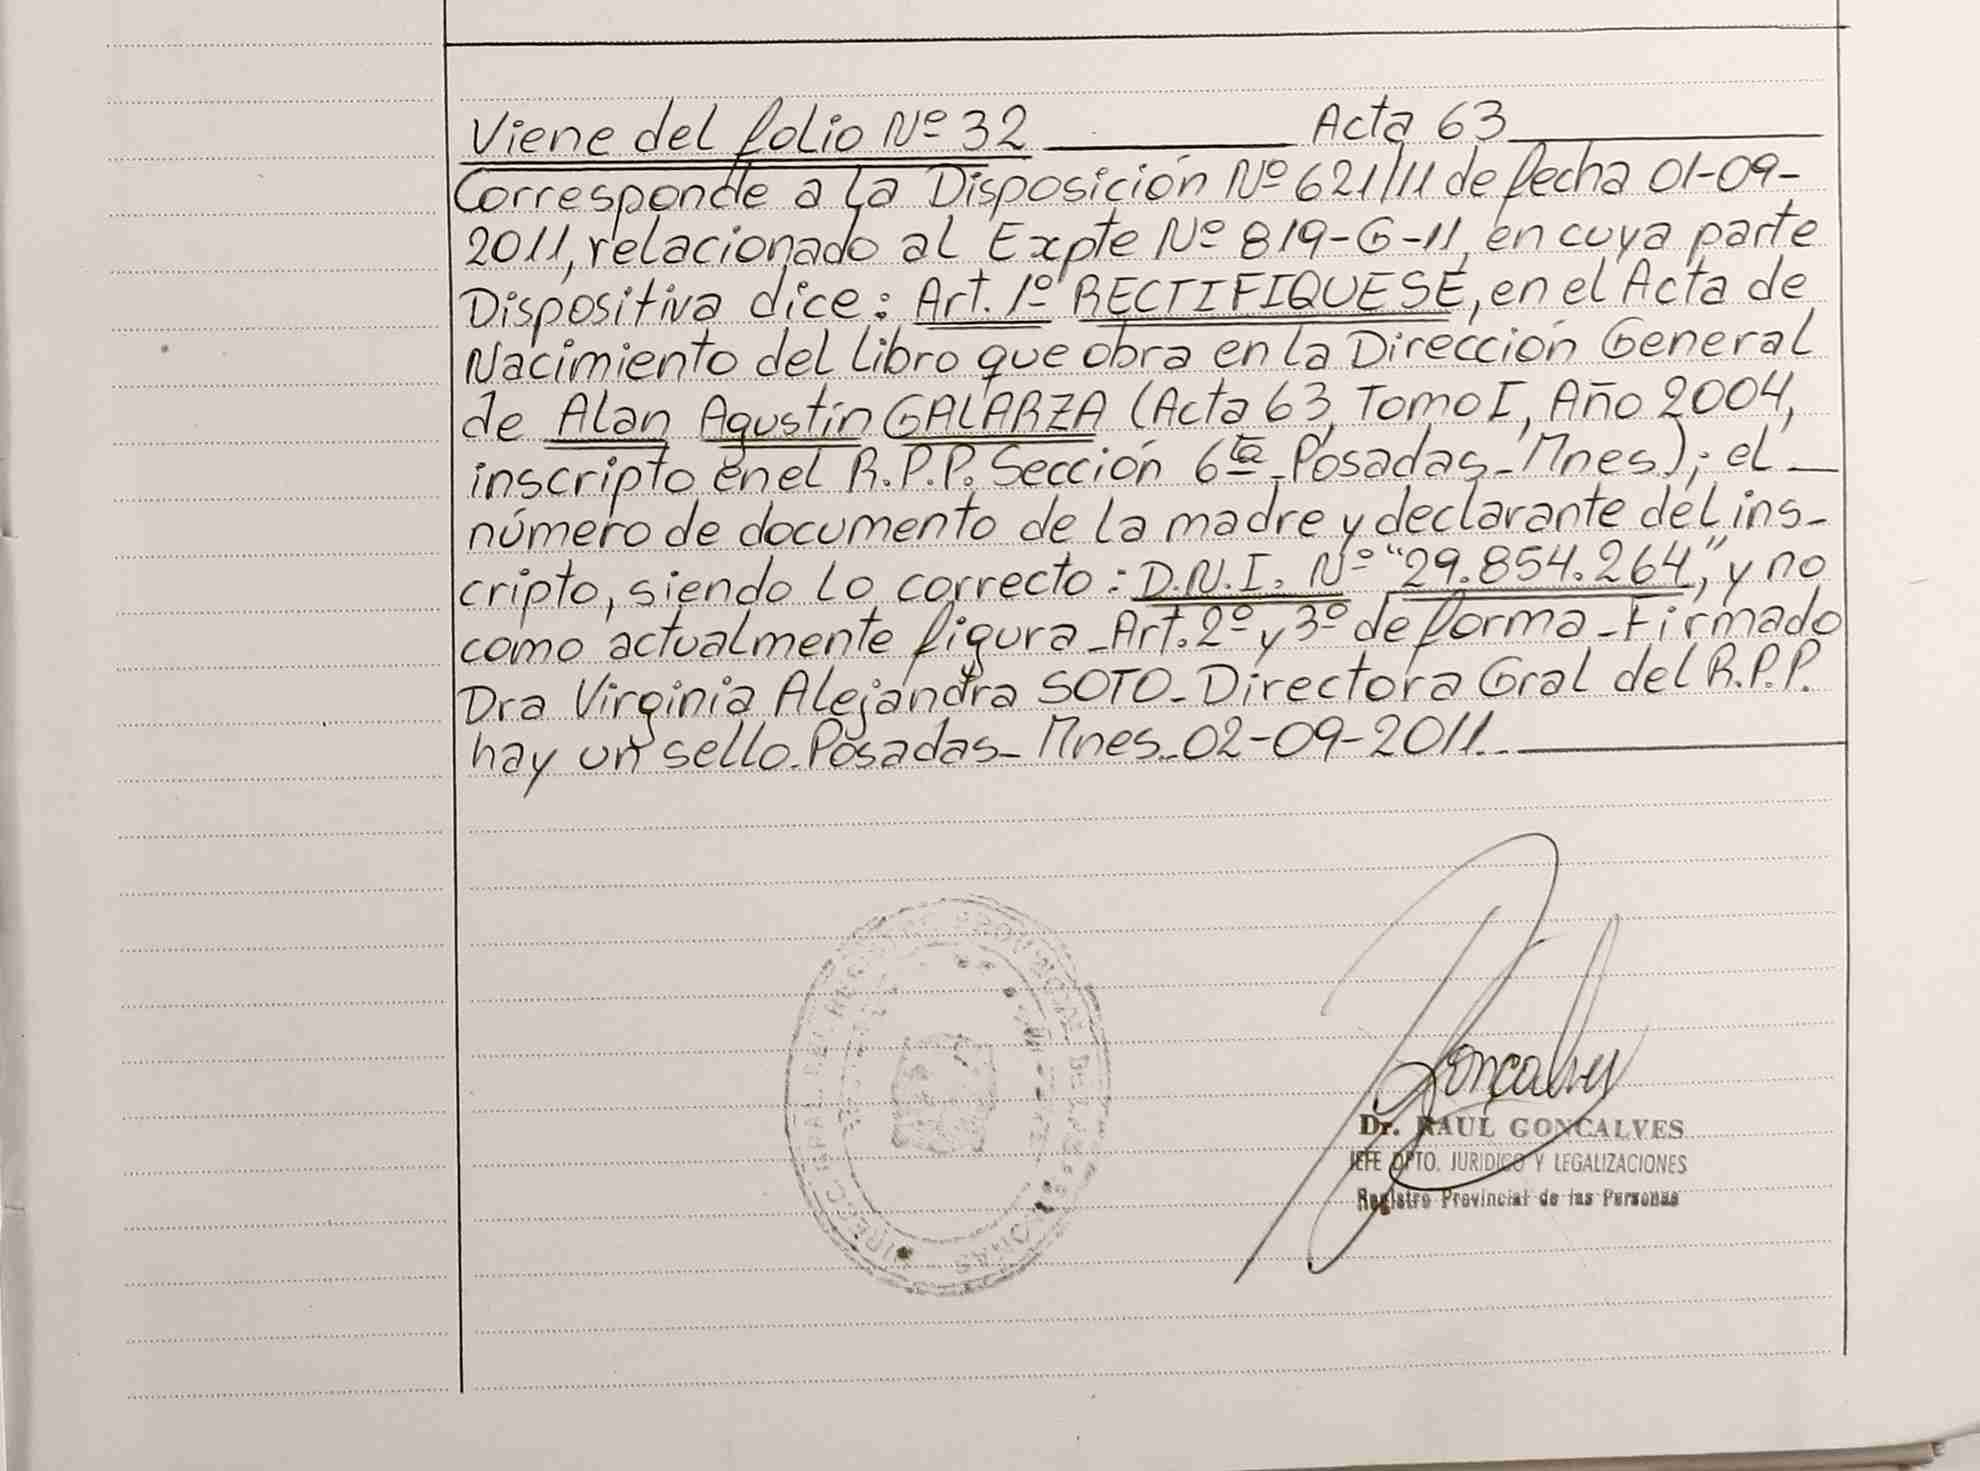 Viene del folio Nº 32 Acta 63
Corresponde a la Disposición Nº 621/11 de fecha 01-09-
2011, relacionado al Expte Nº 819-G-11, en cuya parte
Dispositiva dice: Art. 1º RECTIFIQUESE, en el Acta de
Nacimiento del libro que obra en la Dirección General
de Alan Agustín GALARZA (Acta 63, Tomo I, Año 2004,
inscripto en el R.P.P. Sección 6ta Posadas-Mnes); el
número de documento de la madre y declarante del ins-
cripto, siendo lo correcto: D.N.I. Nº "29.854.264", y no
como actualmente figura-Art. 2º y 3º de forma-Firmado
Dra Virginia Alejandra SOTO-Directora Gral del R.P.P.
hay un sello-Posadas-Mnes-02-09-2011.
Gonçalves
Dr. RAUL GONCALVES
JEFE DPTO. JURIDICO Y LEGALIZACIONES
Registro Provincial de las Personas